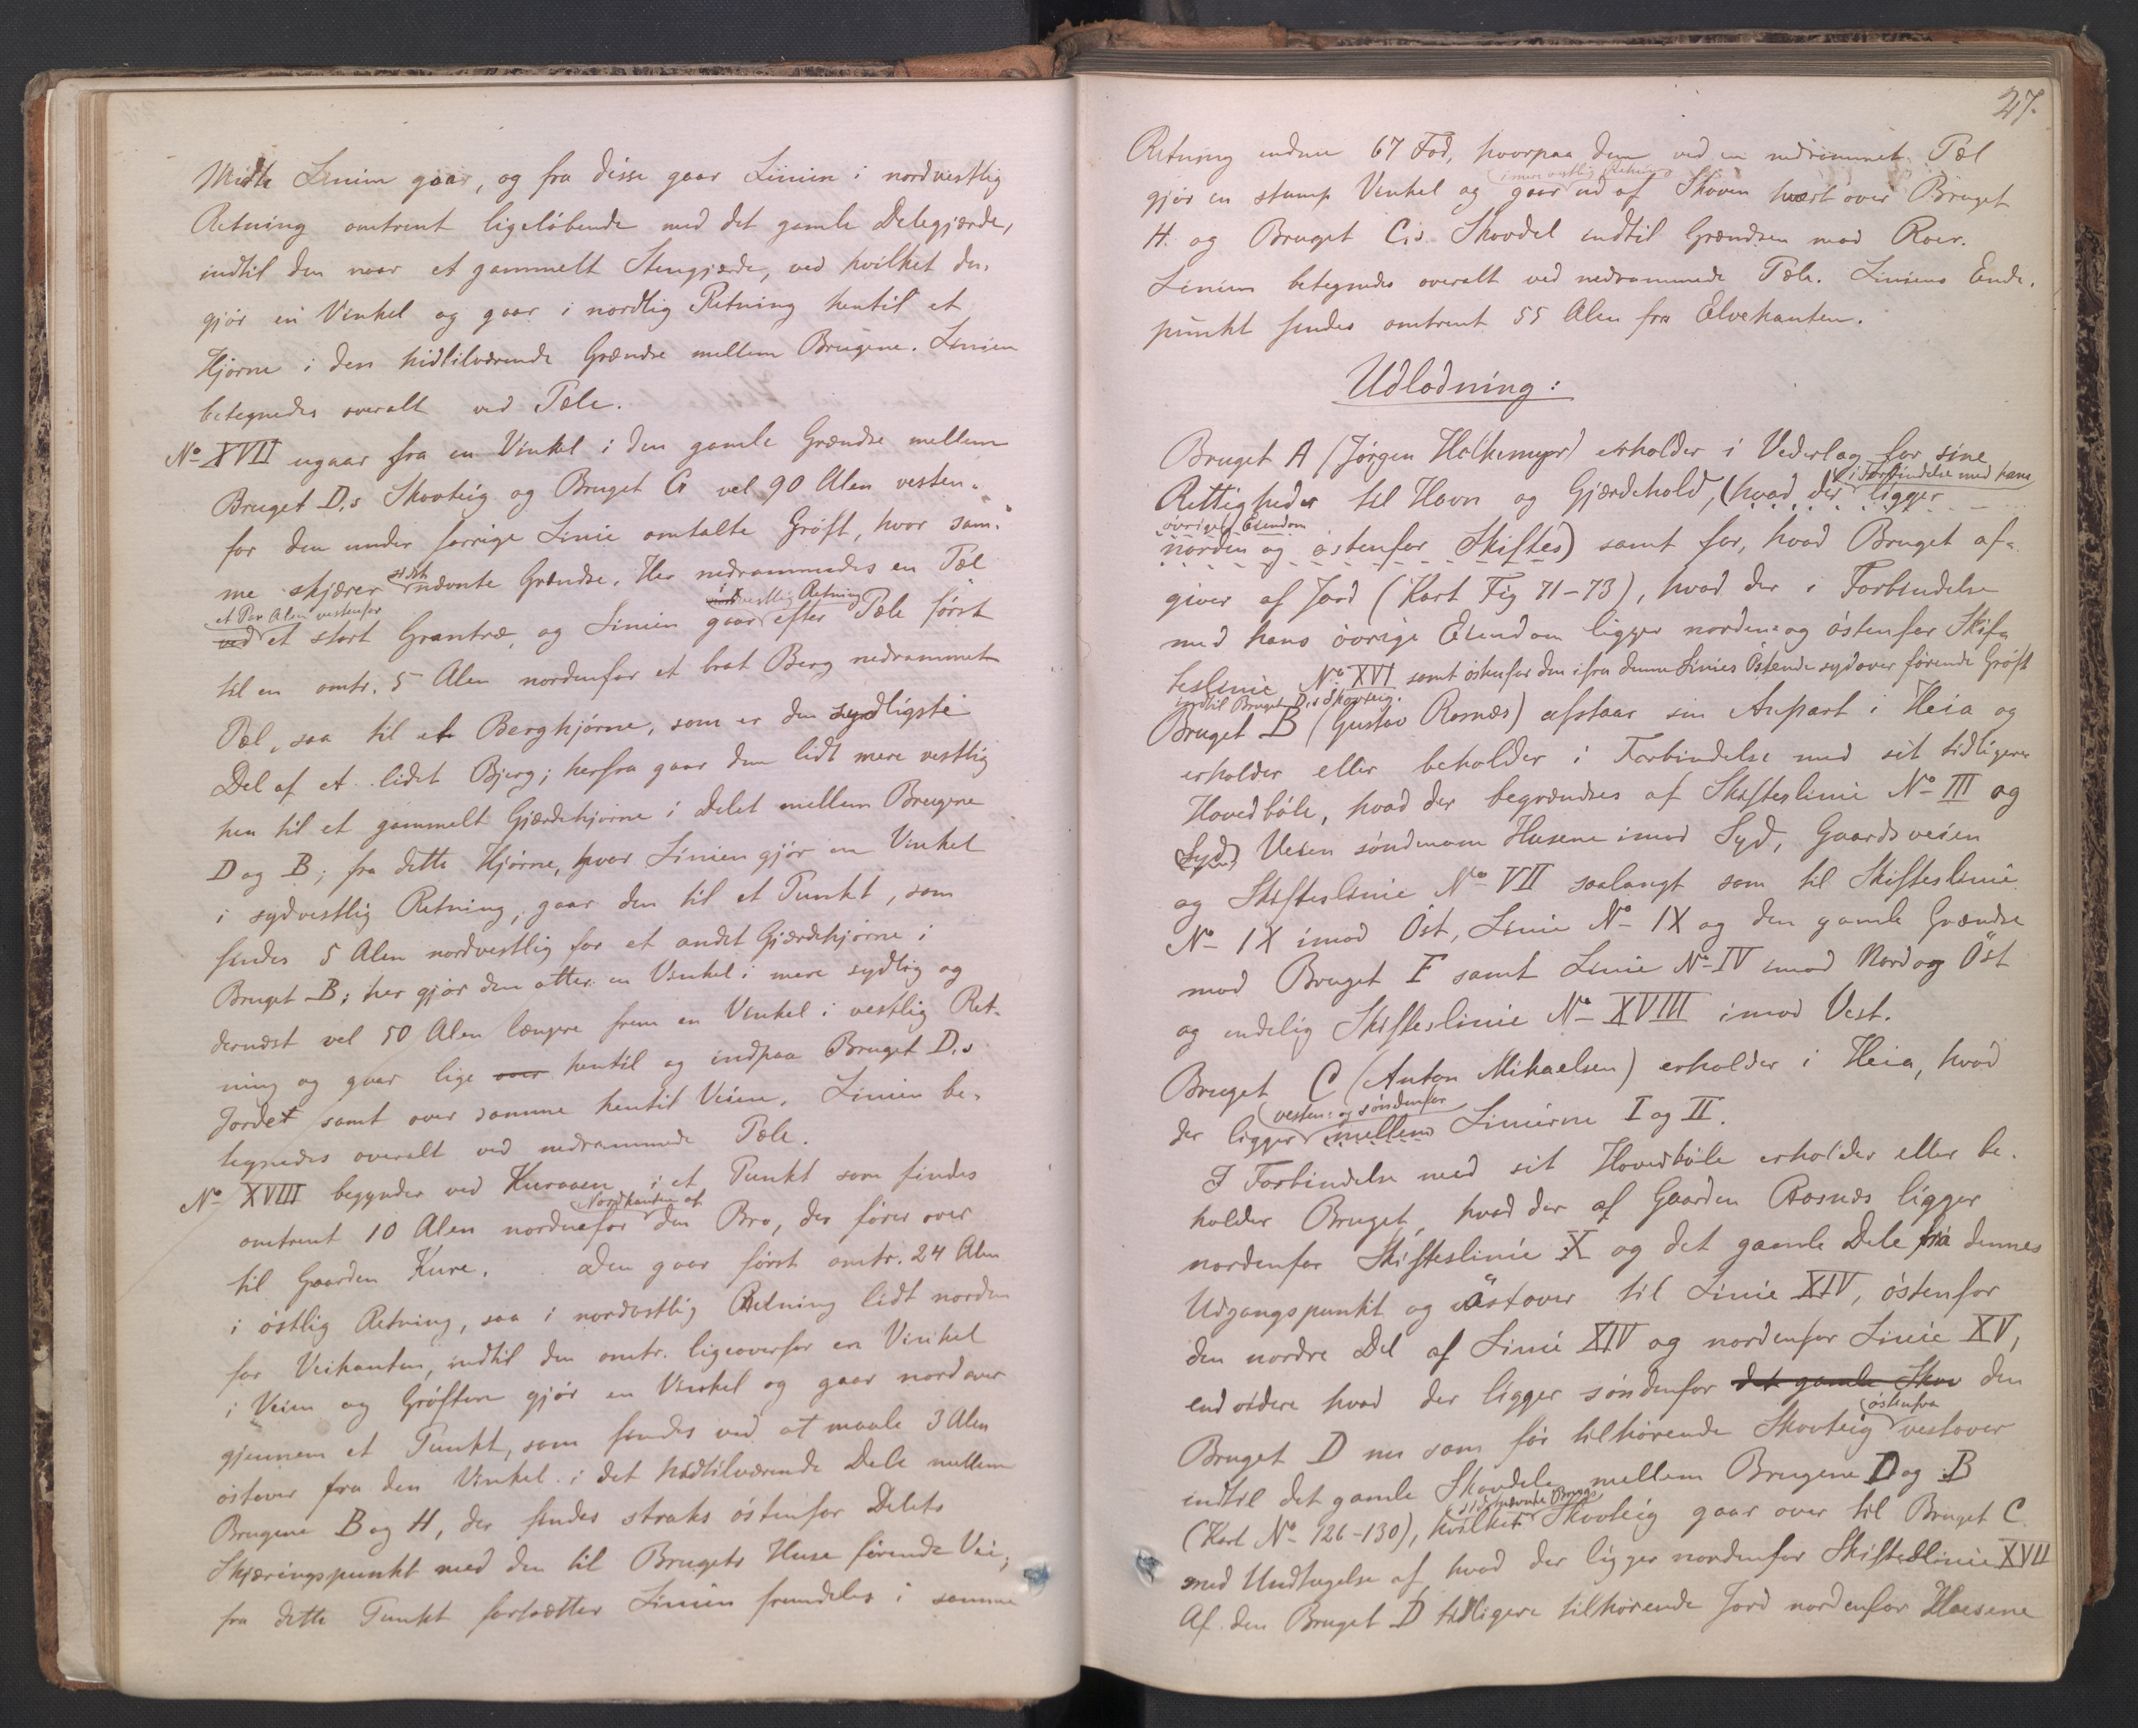 Midte Linien gaar, og fra disse gaar Linien i nordvestlig
Retning omtrent ligeløbende med det gamle Delegjærde,
indtil den naar et gammelt Stengjærde, ved hvilket den
gjør en Vinkel og gaar i nordlig Retning hentil et
Hjørne i den hidtilværende Grændse mellem Brugene. Linien
betegnedes overalt ved Pæle.
No XVII udgaar fra en Vinkel i den gamle Grændse mellem
Bruget D.s Skovteig og Bruget G vel 90 Alen vesten-
for den under forrige Linie omtalte Grøft, hvor sam-
me skjærer sidstnævnte Grændse. Her nedrammedes en Pæl
et Par Alen vestenfor
nordvestlig Retning
ved et stort Grantræ, og Linien gaar efter Pæle først
til en omtr. 5 Alen nordenfor et brat Berg nedrammet
Pæl, saa til et Berghjørne, som er den sydligste
Del af et lidet Bjerg; herfra gaar den lidt mere vestlig
hen til et gammelt Gjærdehjørne i Delet mellem Brugene
D og B; fra dette Hjørne, hvor Linien gjør en Vinkel
i sydvestlig Retning, gaar den til et Punkt, som
findes 5 Alen nordvestlig for et andet Gjærdehjørne i
Bruget B; her gjør den atter en Vinkel i mere sydlig og
dernæst vel 50 Alen længere frem en Vinkel i vestlig Ret-
ning og gaar lige over hentil og indpaa Bruget D.s
Jordet samt over samme hentil Veien. Linien be-
tegnedes overalt ved nedrammede Pæle.
No XVIII begynder ved Kureaaen i et Punkt som findes
Nordkanten af
omtrent 10 Alen nordenfor den Bro, der fører over
til Gaarden Kure. Den gaar først omtr. 24 Alen
i østlig Retning, saa i nordostlig Retning lidt norden
for Veikanten, indtil den omtr. ligeoverfor en Vinkel
i Veien og Grøften gjør en Vinkel og gaar nordover
gjennem et Punkt, som findes ved at maale 3 Alen
østover fra den Vinkel i det hidtilværende Dele mellem
Brugene B og H, der findes straks østenfor Delets
Skjæringspunkt med den til Brugets Huse førende Vei;
fra dette Punkt fortsætter Linien fremdeles i samme
27.
Retning endnu 67 Fod, hvorpaa den ved en nedrammet Pæl
i mere vestlig Retning
gjør en stump Vinkel og gaar ud af Skoven tvært over Bruget
H. og Bruget C.s Skovdel indtil Grændsen mod Roer.
Linien betegnedes overalt ved nedrammede Pæle. Liniens Ende-
punkt findes omtrent 55 Alen fra Elvekanten.
Udlodning:
Bruget A (Jørgen Halkemyr) erholder i Vederlag for sine
i Forbindelse med hans
Rettigheder til Havn og Gjærdehold, (hvad der ligger
øvrige Eiendom
norden og østenfor Skiftes) samt for, hvad Bruget af-
giver af Jord (Kart Fig 71-73), hvad der i Forbindelse
med hans øvrige Eiendom ligger norden- og østenfor Skif-
teslinie No XVI samt østenfor den ifra denne Linies Østende sydover førende Grøft
indtil Bruget D.s Skovteig.
Bruget B (Gustav Rosnæs) afstaar sin Anpart i Heia og
erholder eller beholder i Forbindelse med sit tidligere
Hovedbøle, hvad der begrændses af Skifteslinie No III og
Veien søndenom Husene imod Syd, Gaardsveien
og Skifteslinie No VII saalangt som til Skifteslinie
No IX imod Øst, Linie No IX og den gamle Grændse
mod Bruget F samt Linie No IV imod Nord og Øst
og endelig Skifteslinie No XVIII imod Vest.
Bruget C (Anton Mikaelsen) erholder i Heia, hvad
vesten- og søndenfor
der ligger mellem Linierne I og II.
I Forbindelse med sit Hovedbøle erholder eller be-
holder Bruget, hvad der af Gaarden Rosnæs ligger
nordenfor Skifteslinie X og det gamle Dele fra dennes
Udgangspunkt og østover til Linie XIV, østenfor
den nordre Del af Linie XIV og nordenfor Linie XV,
end videre hvad der ligger søndenfor det gamle Skov den
østenfra
Bruget D nu som før tilhørende Skovteig vestover
indtil det gamle Skovdele mellem Brugene D og B
sidstnævnte Brugs
(Kart No 126-130), hvilken Skovteig gaar over til Bruget C
med Undtagelse af hvad der ligger nordenfor Skifteslinie XVII
Af den Bruget D tidligere tilhørende Jord nordenfor Husene